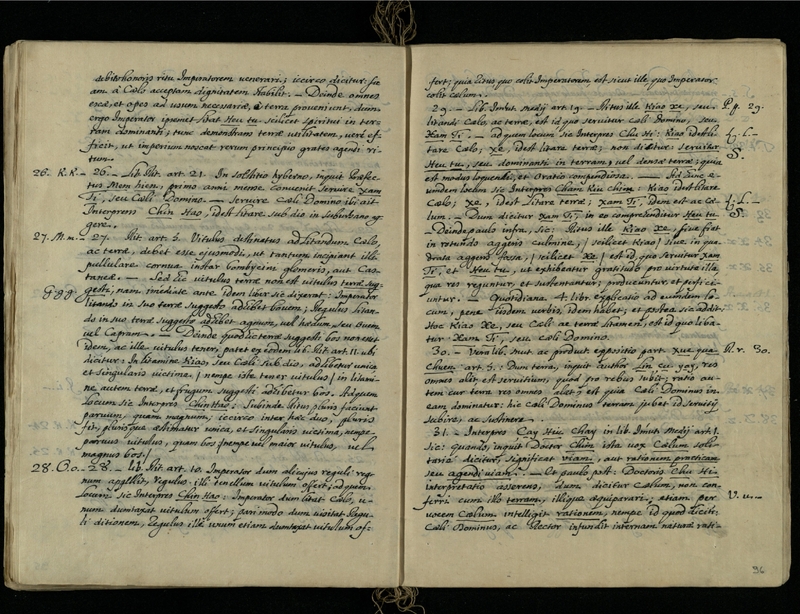 debito honoris ritu Imperatorem venerari; iccirco dicitur: se
am à Cælo acceptam dignitatem stabilit. – Deinde omnes
escæ, et opes ad usum necessariæ, è terra proveniunt, dum
ergo Imperator ipsemet litat Heu tu scilicet spiritui in ter-
ram dominanti; tunc demonstrans terræ utilitatem, verè ef-
ficit, ut imperium noscat rerum principio grates agendi ri-
tum. –
26. K.K. – 26. – Lib. Rit. art. 21. In solstitio hyberno, inquit Præfec-
tus Mem hien, primo anni mense convenit servire Xam
Ti, seu Cæli Domino. – Servire Cæli Domino ibi ait
Interpres Chin Hao, idest litare sub dio in suburbano ag-
gere. –
27. M.m. – 27. Rit. art. 5. Vitulus destinatus ad litandum Cælo,
ac terræ, debet esse ejusmodi, ut tantum incipiant illi
pullulare cornua instar bombycini glomeris, aut Cas-
taneæ. – Sed hic vitulus terræ non est vitulus terræ sug-
ggg gesti; nam immediate ante idem liber sic dixerat: Imperator
litando in suo terræ suggesto adhibet bovem; Regulus litan-
do in suo terræ suggesto adhibet agnum, vel hædum, seu ovem
vel Capram. – Deinde quod hic terræ suggesti bos non esset
idem, ac ille vitulus tener, patet ex eodem lib. Rit. art. 11. ubi
dicitur: In litamine Kiao, seu Cæli sub dio, adhibetur unica
et singularis victima / nempe iste tener vitulus / in litami-
ne autem terræ, et frugum suggesti adhibetur bos. Ad quem
locum sic Interpres Chin Hao: Subinde Ritus pluris faciunt
parvum, quam magnum; iccirco inter hæc duo, pluris
fit, plurisque æstimatur unica, et singularis victima, nempe
parvus vitulus, quam bos / nempe vil maior vitulus, vel
magnus bos. /
28. O.o. – 28. – Lib. Rit. art. 10. Imperator dum alicujus reguli reg-
num appellit, Regulus illi tenellum vitulum offert; ad quem
locum sic Interpres Chin Hao: Imperator dum litat Cælo, u-
num dumtaxat vitulum offert; pari modo dum visitat Regu-
li ditionem, Regulus illi unum etiam dumtaxat vitulum of-
fert; quia Ritus quo colit Imperatorem est sicut ille quo Imperator
colit cælum. –
29. – Lib. Imut. Medij art. 19. – Ritus ille Kiao Xe, seu P.p. 29.
litandi Cælo, ac terræ, est id quo servitur Cæli Domino, seu
Xam Ti. – ad quem locum sic Interpres Chu Hi: Kiao idest li- f.L. –
tare Cælo; Xe, idest litare terræ; non dicitur servitur S.
Heu tu, seu dominanti in terram, vel deusæ terræ; quia
est modus loquendi, et Oratio compendiosa. – Ad hunc e-
undem locum sic Interpres Cham Kiu Chim: Kiao idest litare
Cælo; Xe, idest litare terræ; Xam Ti, idem est ac Cæ- f.L. –
lum. – Dum dicitur Xam Ti, in eo comprehenditur Heu tu S.
– Deinde paulo infra, sic: Ritus ille Kiao Xe, sive fiat
in rotundo aggeris culmine, / scilicet Kiao / sive in qua-
drata aggeris fossa, / scilicet Xe / est id, quo servitur Xam
Ti, et Heu tu, ut exhibeatur gratitudo pro virtute illa,
qua res reguntur, et sustentantur; producuntur, et perfici-
untur. – Quotidiana 4. lib. explicatio ad eundem lo-
cum, pene ijsdem verbis, idem habet; et postea sic addit:
Hoc Kiao Xe, seu Cæli ac terræ litamen, est id quo liba-
tur Xam Ti, seu Cæli Domino.
30. – Vera lib. mut. ac produt. expositio part. xue qua R.r. 30.
Chuen art. 5.: Dum terra, inquit author Lin cu yoy, res
omnes alit est servitium, quod pro rebus subit; ratio au-
tem cur terra res omnes alat est quia Cæli Dominus in
eam dominatur: hic Cæli Dominus terram jubet id servitij
subire, ac sustinere. –
31. – Interpres Cay Hiu Chay in lib. Imut. Medij art. 1.
sic: Quando, inquit Doctor Chim ista vox Cælum soli-
tarie dicitur, significat viam, aut rationem practicam
seu agendi viam. – Et paulo post: Doctoris Chu Hi
interpretatio asserens, dum dicitur Cælum, non con-
ferri cum illo terram, illique æquiparari; etiam per V.u. –
vocem Cælum intelligit rationem, nempe id quod dicit:
Cæli Dominus, ac Rector infundit internam naturæ rati-
96